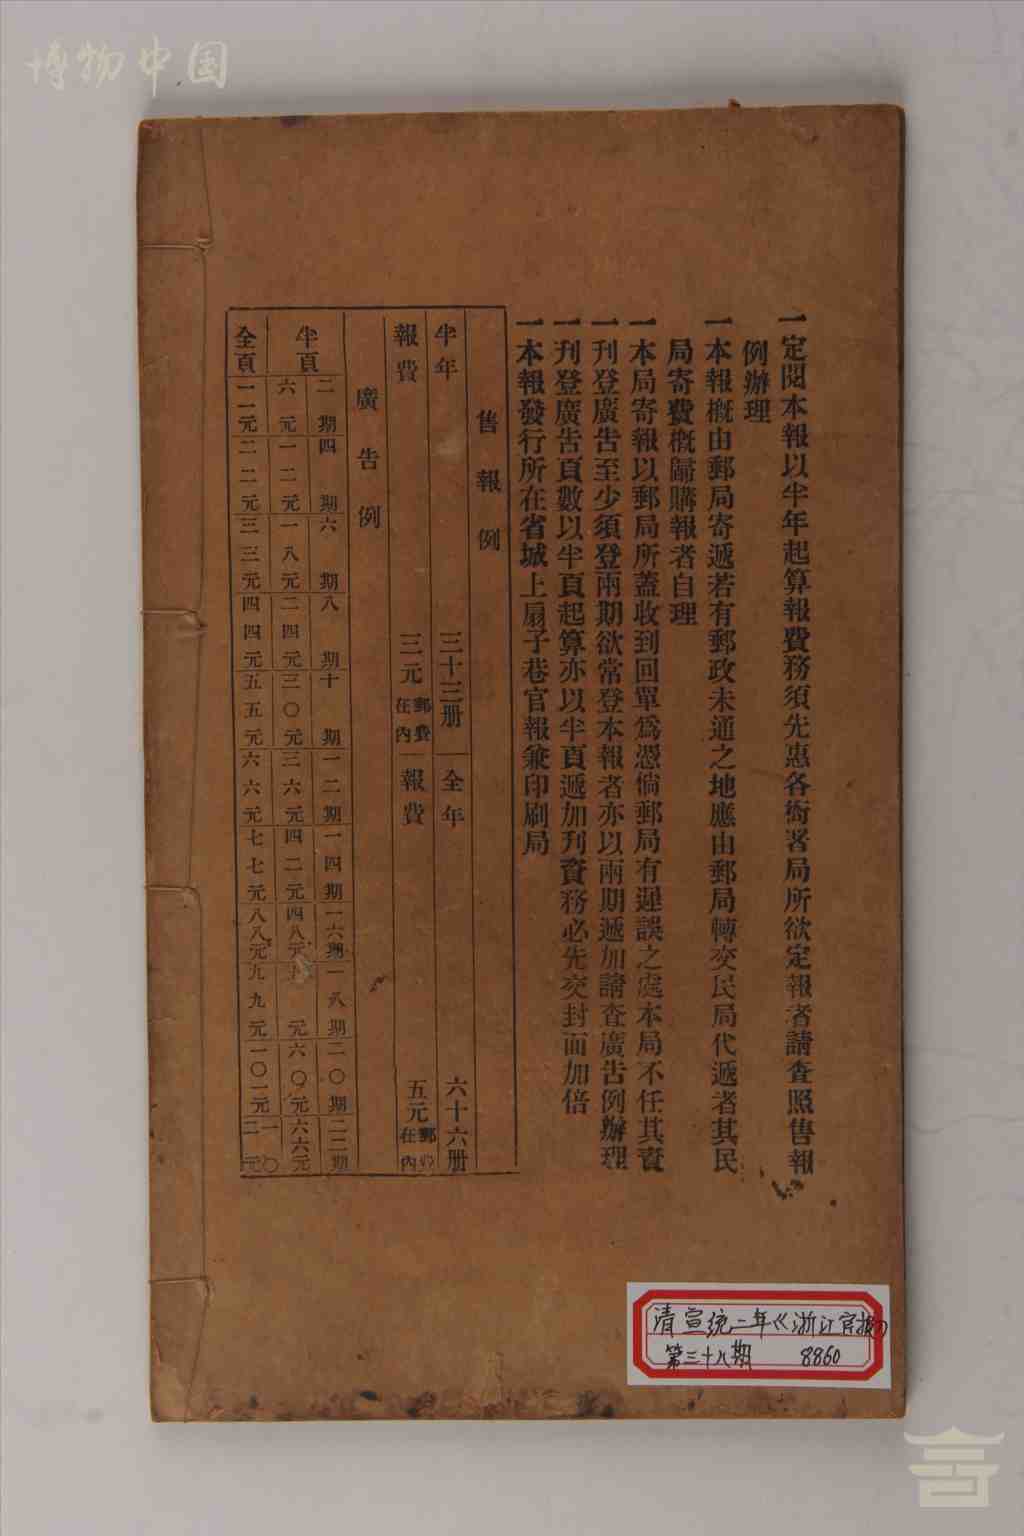 博物中国
一定閱本報以半年起算報費務須先惠各衙署局所欲定報者請查照售報
例辦理
一本報概由郵局寄遞若有郵政未通之地應由郵局轉交民局代遞者其民
局寄費概歸購報者自理
一本局寄報以郵局所蓋收到回單爲憑倘郵局有遲誤之處本局不任其責
一刊登廣告至少須登兩期欲常登本報者亦以兩期遞加請查廣告例辦理
一刊登廣告頁數以半頁起算亦以半頁遞加刊資務必先交封面加倍
一本報發行所在省城上扇子巷官報兼印刷局
售報例
半年 三十三册 全年 六十六册
報費 三元郵費在內 報費 五元郵 在內
廣告例
二期 四期 六期 八期 十期 一二期 一四期 一六期 一八期 二〇期 二二期
半頁 六元 一二元 一八元 二四元 三〇元 三六元 四二元 四八元 元 六〇元 六六元
全頁 一一元 二二元 三三元 四四元 五五元 六六元 七七元 八八元 九九元 一〇一元 一二〇元
清宣统二年《浙江官报》
第三十八期 8860